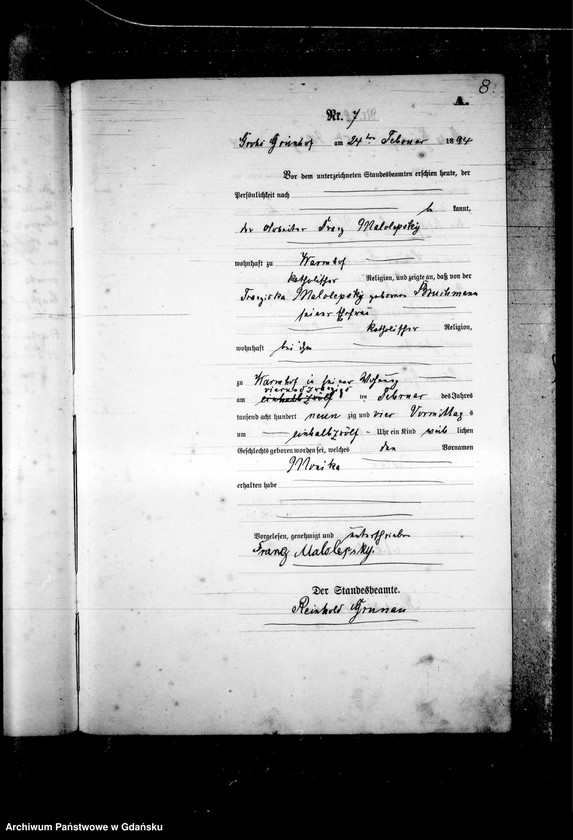 8.
A.
Nr. 7
Groß Grünhof am 24 ten Februar 1894
Vor dem unterzeichneten Standesbeamten erschien heute, der
Persönlichkeit nach
be kannt,
der Arbeiter Franz Malolepsky
wohnhaft zu Warmhof
katholischer Religion, und zeigte an, daß von der
Franziska Malolepsky geborenen
seiner Ehefrau
katholischer Religion,
wohnhaft bei ihm
zu Warmhof in seiner Wohnung
vierundzwanzig
am einhalbzwölf ten Februar des Jahres
tausend acht hundert neun zig und vier Vormittag s
um einhalbzwölf Uhr ein Kind weib lichen
Geschlechts geboren worden sei, welches den Vornamen
Monika
erhalten habe
Vorgelesen, genehmigt und unterschrieben
Franz Malolepsky.
Der Standesbeamte.
Reinhold Grunau
Archiwum Państwowe w Gdańsku